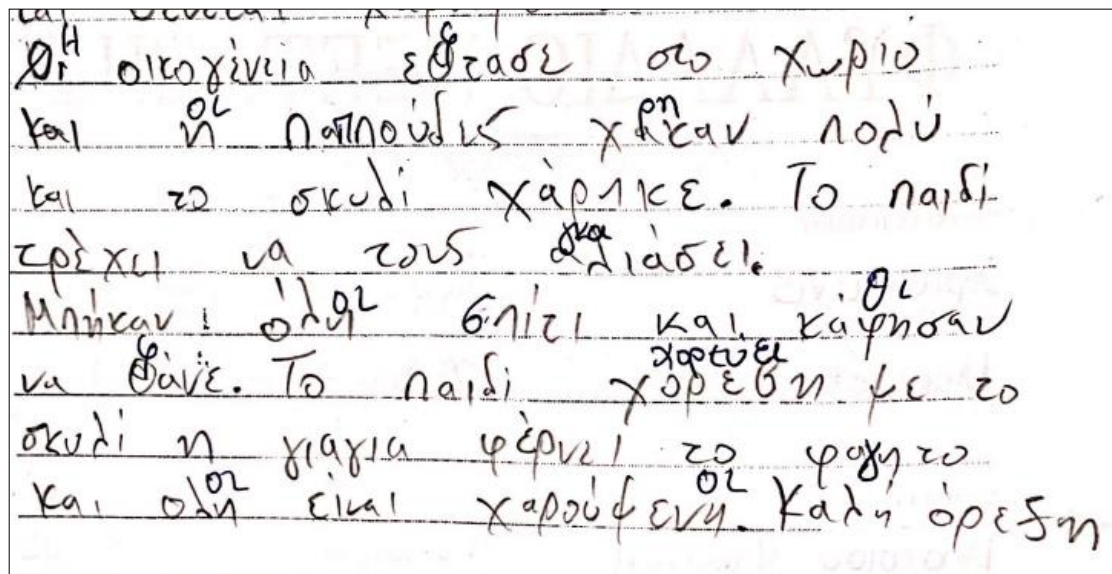 Η οικογένεια εφτάσε στο χωριό
και οι παππούδις χάρηκαν πολύ
και το σκυλί χάρηκε. Το παιδί
τρέχει να τους αγκαλιάσει.
Μπήκαν όλοι σπίτι και κάθισαν
να φάνε. Το παιδί χορεύει με το
σκυλί η γιαγια φέρνει το φαγητο
και ολοι είναι χαρούμενοι. Καλή όρεξη